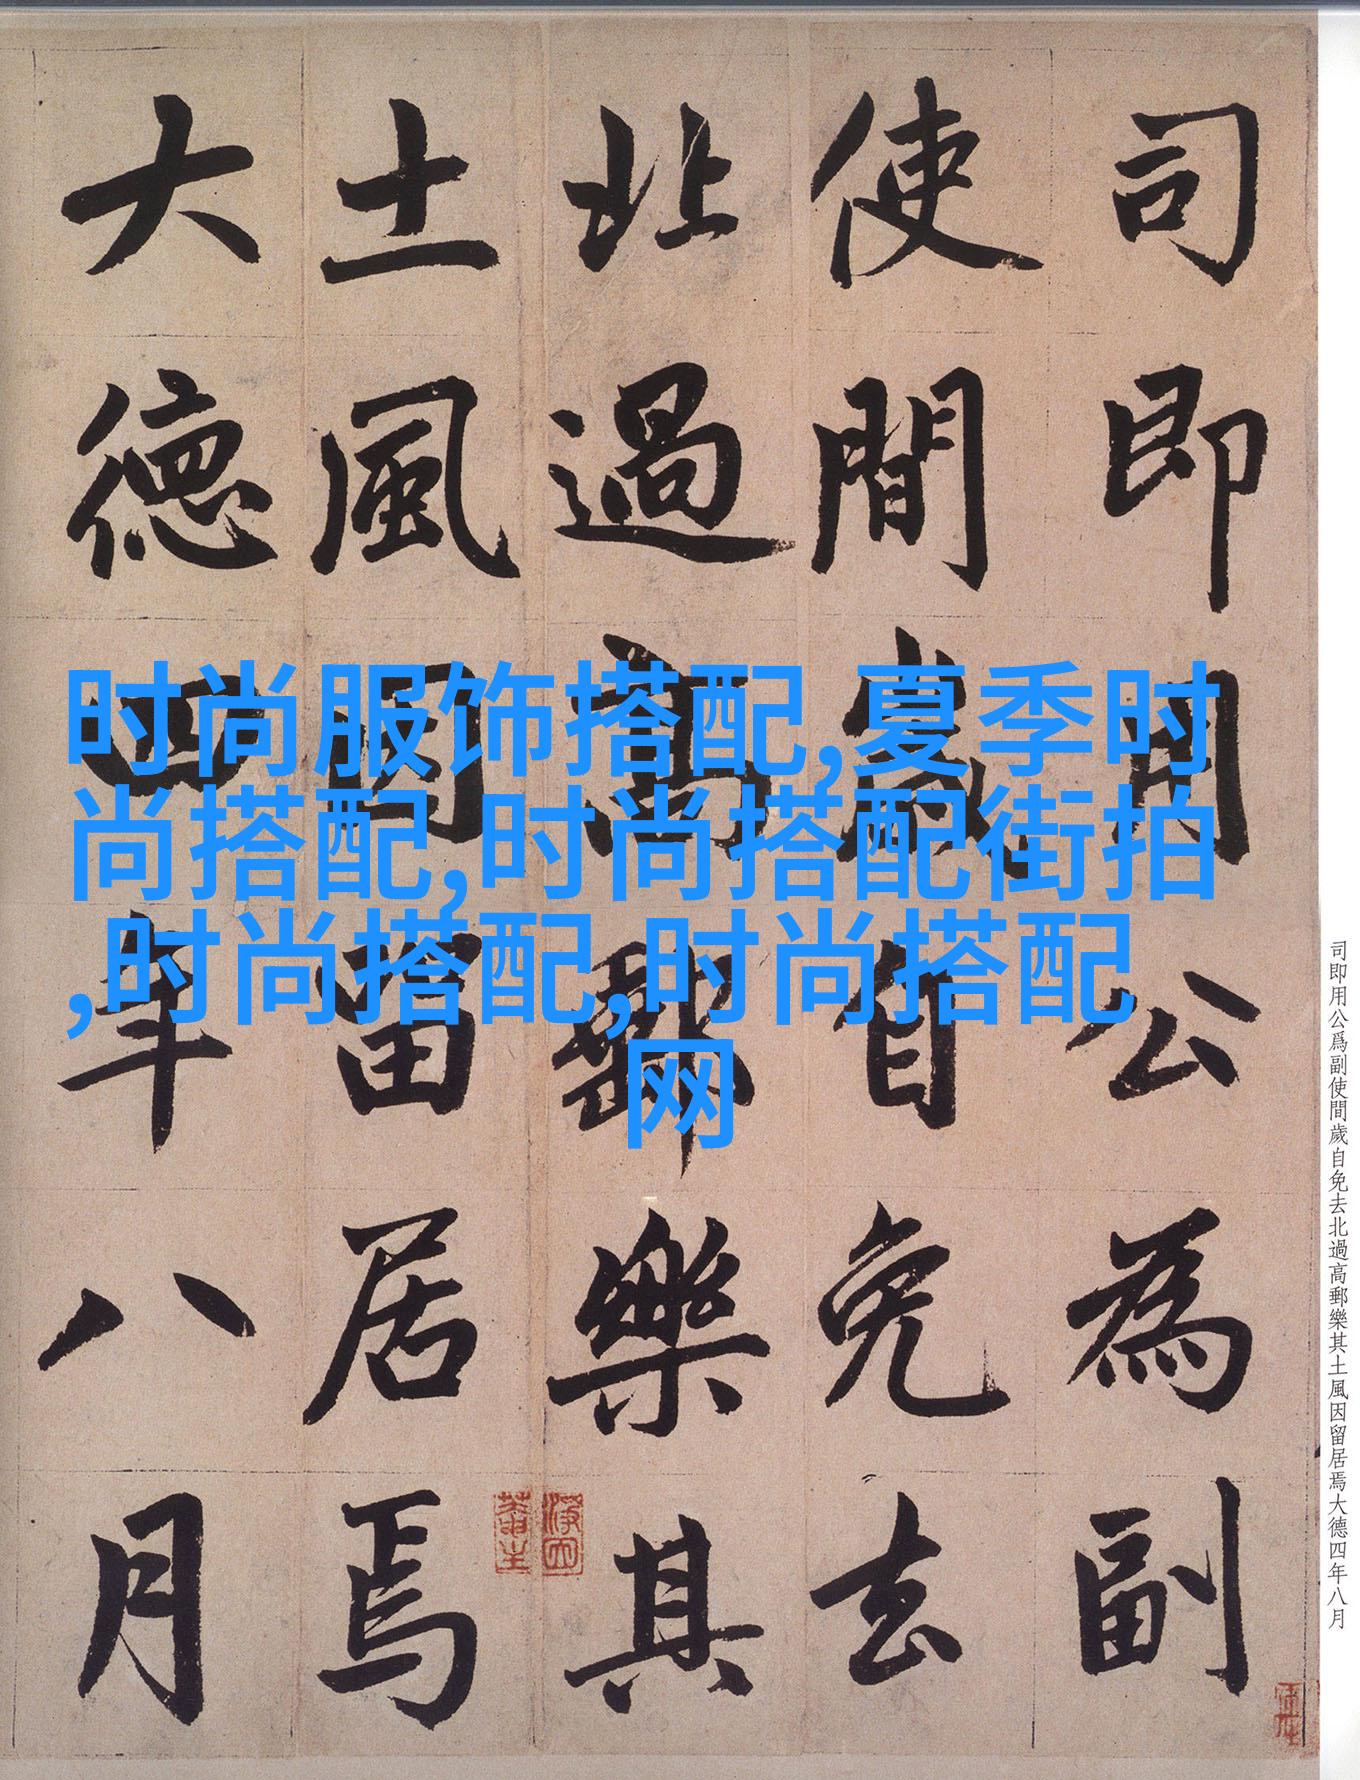 司即用公為副
使間歲自免去
北過高郵樂其
土風因留居焉
大德四年八月
时尚服饰搭配,夏季时
尚搭配,时尚搭配街拍
,时尚搭配,时尚搭配
网
司即用公爲副使間歲自免去北過高郵樂其土風因留居焉大德四年八月